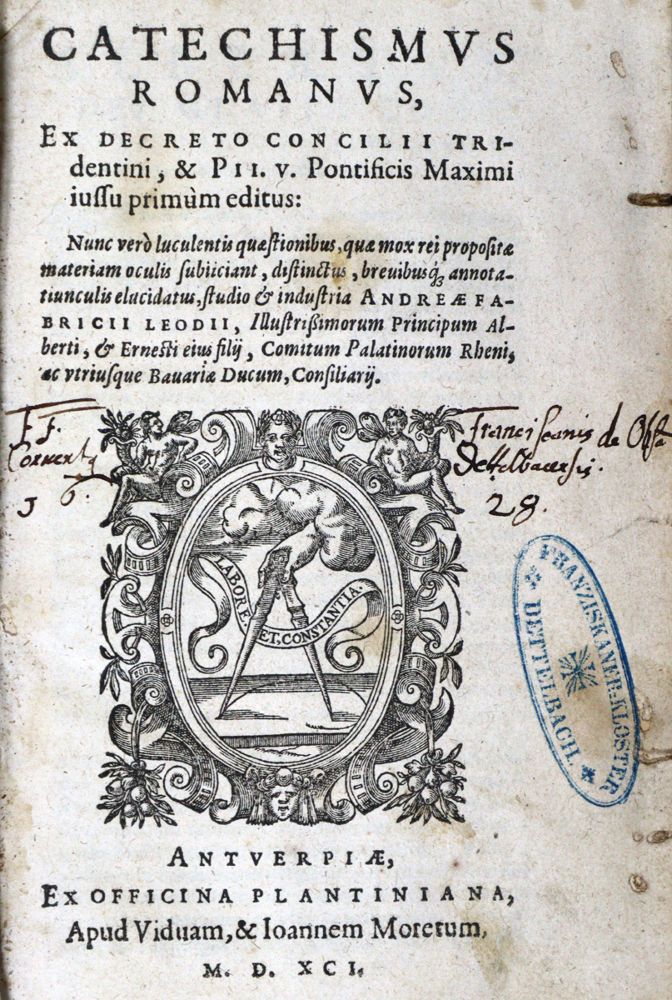 CATECHISMVS
ROMANVS,
EX DECRETO CONCILII TRI-
dentini, & PII. V. Pontificis Maximi
iussu primùm editus:
Nunc verò luculentis quæstionibus, quæ mox rei propositæ
materiam oculis subiiciant, distinctus, breuibusq́; annota-
tiunculis elucidatus, studio & industria ANDREÆ FA-
BRICII LEODII, Illustrißimorum Principum Al-
berti, & Ernesti eius filij, Comitum Palatinorum Rheni,
ac vtriusque Bauariæ Ducum, Consiliarij.
FF.
36.
Franciscanis
Dettelbacensis.
28.
LABORE ET CONSTANTIA.
FRANZISKANER-KLOSTER
DETTELBACH.
ANTVERPIÆ,
EX OFFICINA PLANTINIANA,
Apud Viduam, & Ioannem Moretum,
M. D. XCI.